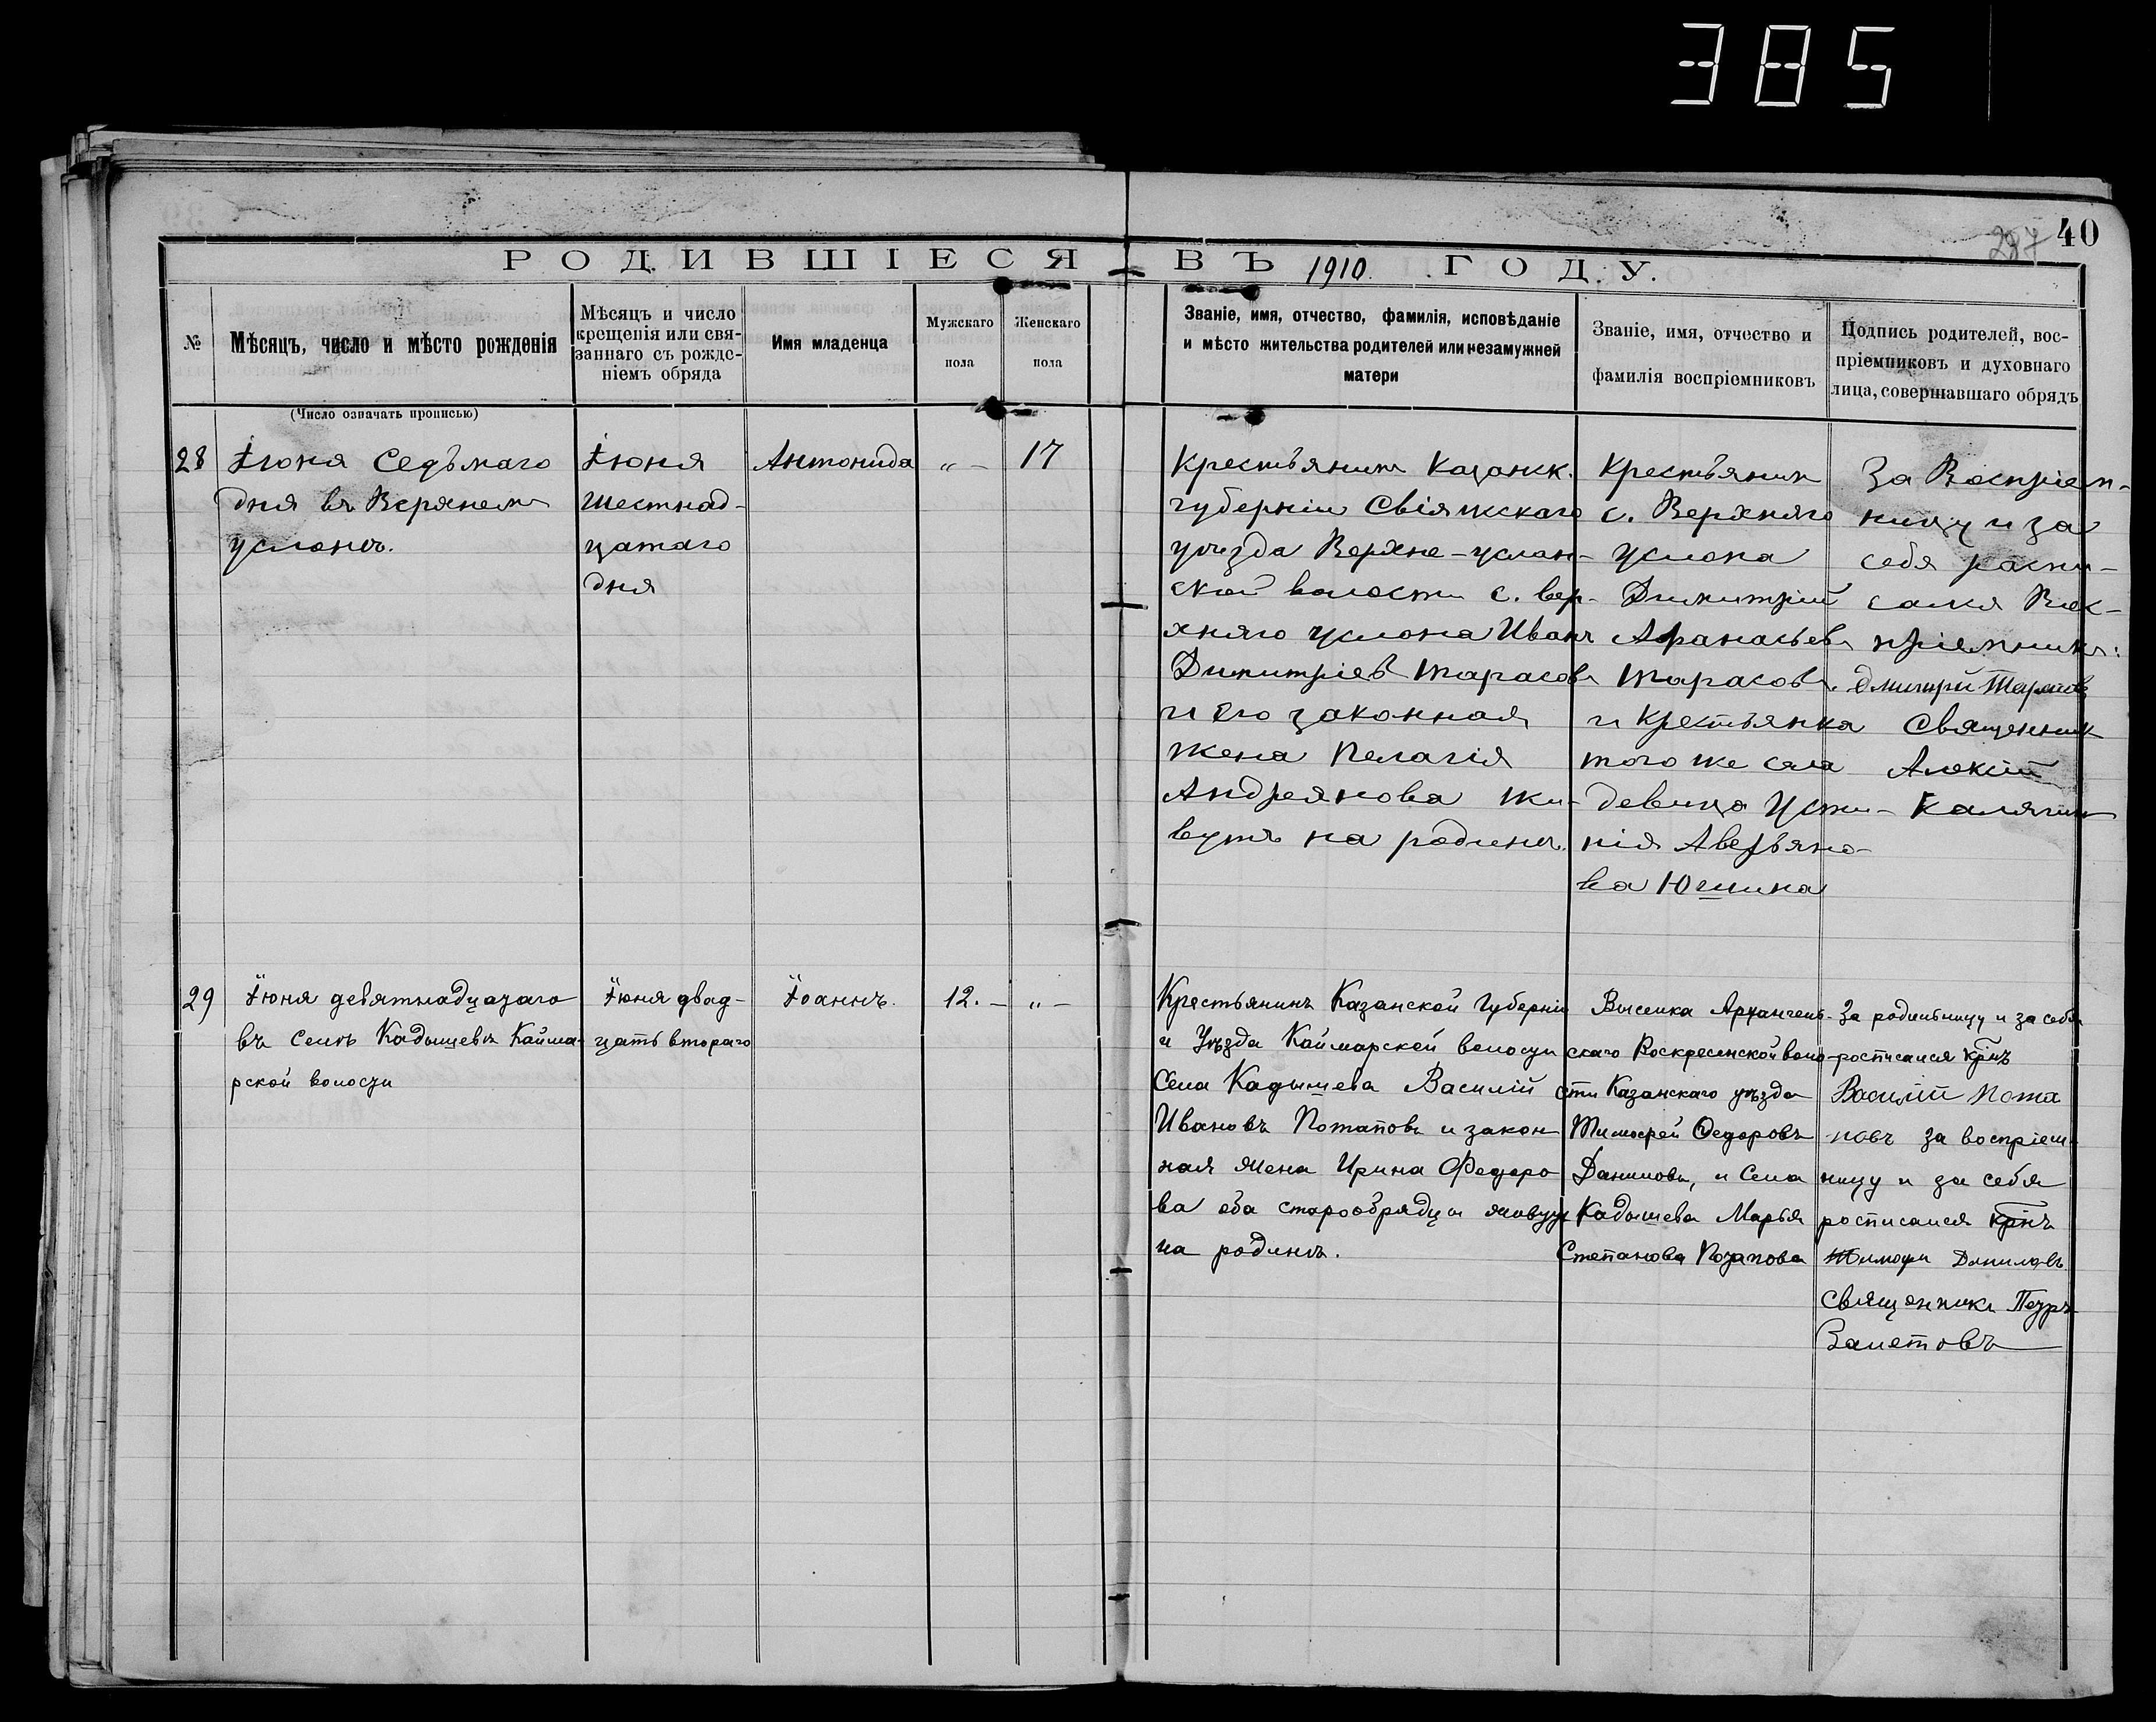 385
40
287
РОДИВШІЕСЯ ВЪ 1910. ГОДУ.
№
Мѣсяцъ, число и мѣсто рожденія
(Число означать прописью)
Мѣсяцъ и число
крещенія или свя-
заннаго съ рожде-
ніемъ обряда
Имя младенца
Мужскаго
пола
Женскаго
пола
Званіе, имя, отчество, фамилія, исповѣданіе
и мѣсто жительства родителей или незамужней
матери
Званіе, имя, отчество и
фамилія воспріемниковъ
Подпись родителей, вос-
пріемниковъ и духовнаго
лица, совершавшаго обрядъ
28
Іюня Седьмаго
дня въ Верхнемъ
услонѣ.
Іюня
шестнад-
цатаго
дня
Антонида
„ -
17
Крестьянинъ Казанск.
губерніи Свіяжскаго
уѣзда Верхне-услон-
ской волости с. Вер-
хняго Услона Иванъ
Димитріевъ Тарасовъ
и его законная
жена Пелагія
Андреянова жи-
вутъ на родинѣ.
Крестьянинъ
с. Верхняго
Услона
Димитрій
Афанасьевъ
Тарасовъ.
и крестьянка
того же села
девица Усти-
нія Аверьяно-
ва Юшина
За Воспріем-
ницу и за
себя распи-
сался Вос-
пріемникъ:
Дмитрй Тарасовъ
Священник
Алекій
Калягин
29
Іюня девятнадцатаго
въ Селѣ Кадышевѣ Кайма-
рской волости
Іюня двад-
цать втораго
Іоаннъ.
12. -
„ -
Крестьянинъ Казанской Губерніи
и Уѣзда Каймарской волости
Села Кадышева Василій
Ивановъ Потаповъ и закон
ная жена Ирина Федоро
ва оба старообрядцы живут
на родинѣ.
Выселка Архангель-
скаго Воскресенской воло-
сти Казанскаго уѣзда
Тимофей Федоровъ
Даниловъ, и Села
Кадышева Марья
Степанова Потапова
За родильницу и за себя
росписался крнъ
Василій Пота
повъ за воспріем-
ницу и за себя
росписался крнъ
Тимофи Даниловъ
священникъ Петръ
Залетовъ